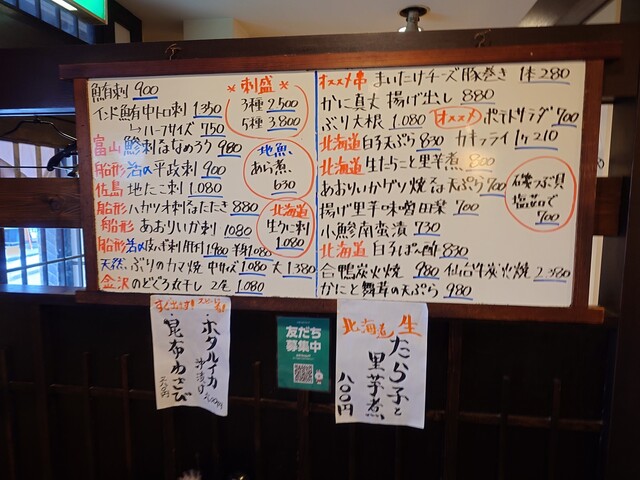 鮪刺 900
インド鮪中トロ刺 1350
↳ハーフサイズ 750
富山 鯵刺 なめろう 980
船形 岩の平政刺 900
佐島 地たこ刺 1,080
船形 カツオ刺 たたき 880
船形 あおりいか刺 1080
船形 1,980 半身1080
天然ぶりのカマ焼 中サイズ1080 大1,380
金沢 のどぐろ丸干し 2尾 1,080
＊刺盛＊
3種 2,500
5種 3,800
地魚
あら煮
630
北海道
生カニ刺
1,080
オススメ串 まいたけチーズ豚巻き 1本280
かに真丈 揚げ出し 880
ぶり大根 1,080 オススメ ポテトサラダ 700
北海道 白子天ぷら 830 カキフライ 1ケ210
北海道 生たらこと里芋煮 800
あおりいかゲソ 焼 又は 天ぷら 700
揚げ里芋味噌田楽 700
小鯵南蛮漬 730
北海道 白子ぽん酢 830
合鴨炭火焼 980 仙台牛炭火焼 2380
かにと舞茸の天ぷら 980
磯つぶ貝
塩茹で
700
すぐ出ます! スピード
・ホタルイカ
沖漬け
・昆布わさび
友だち
募集中
北海道 生
たら子と
里芋煮
八〇〇円